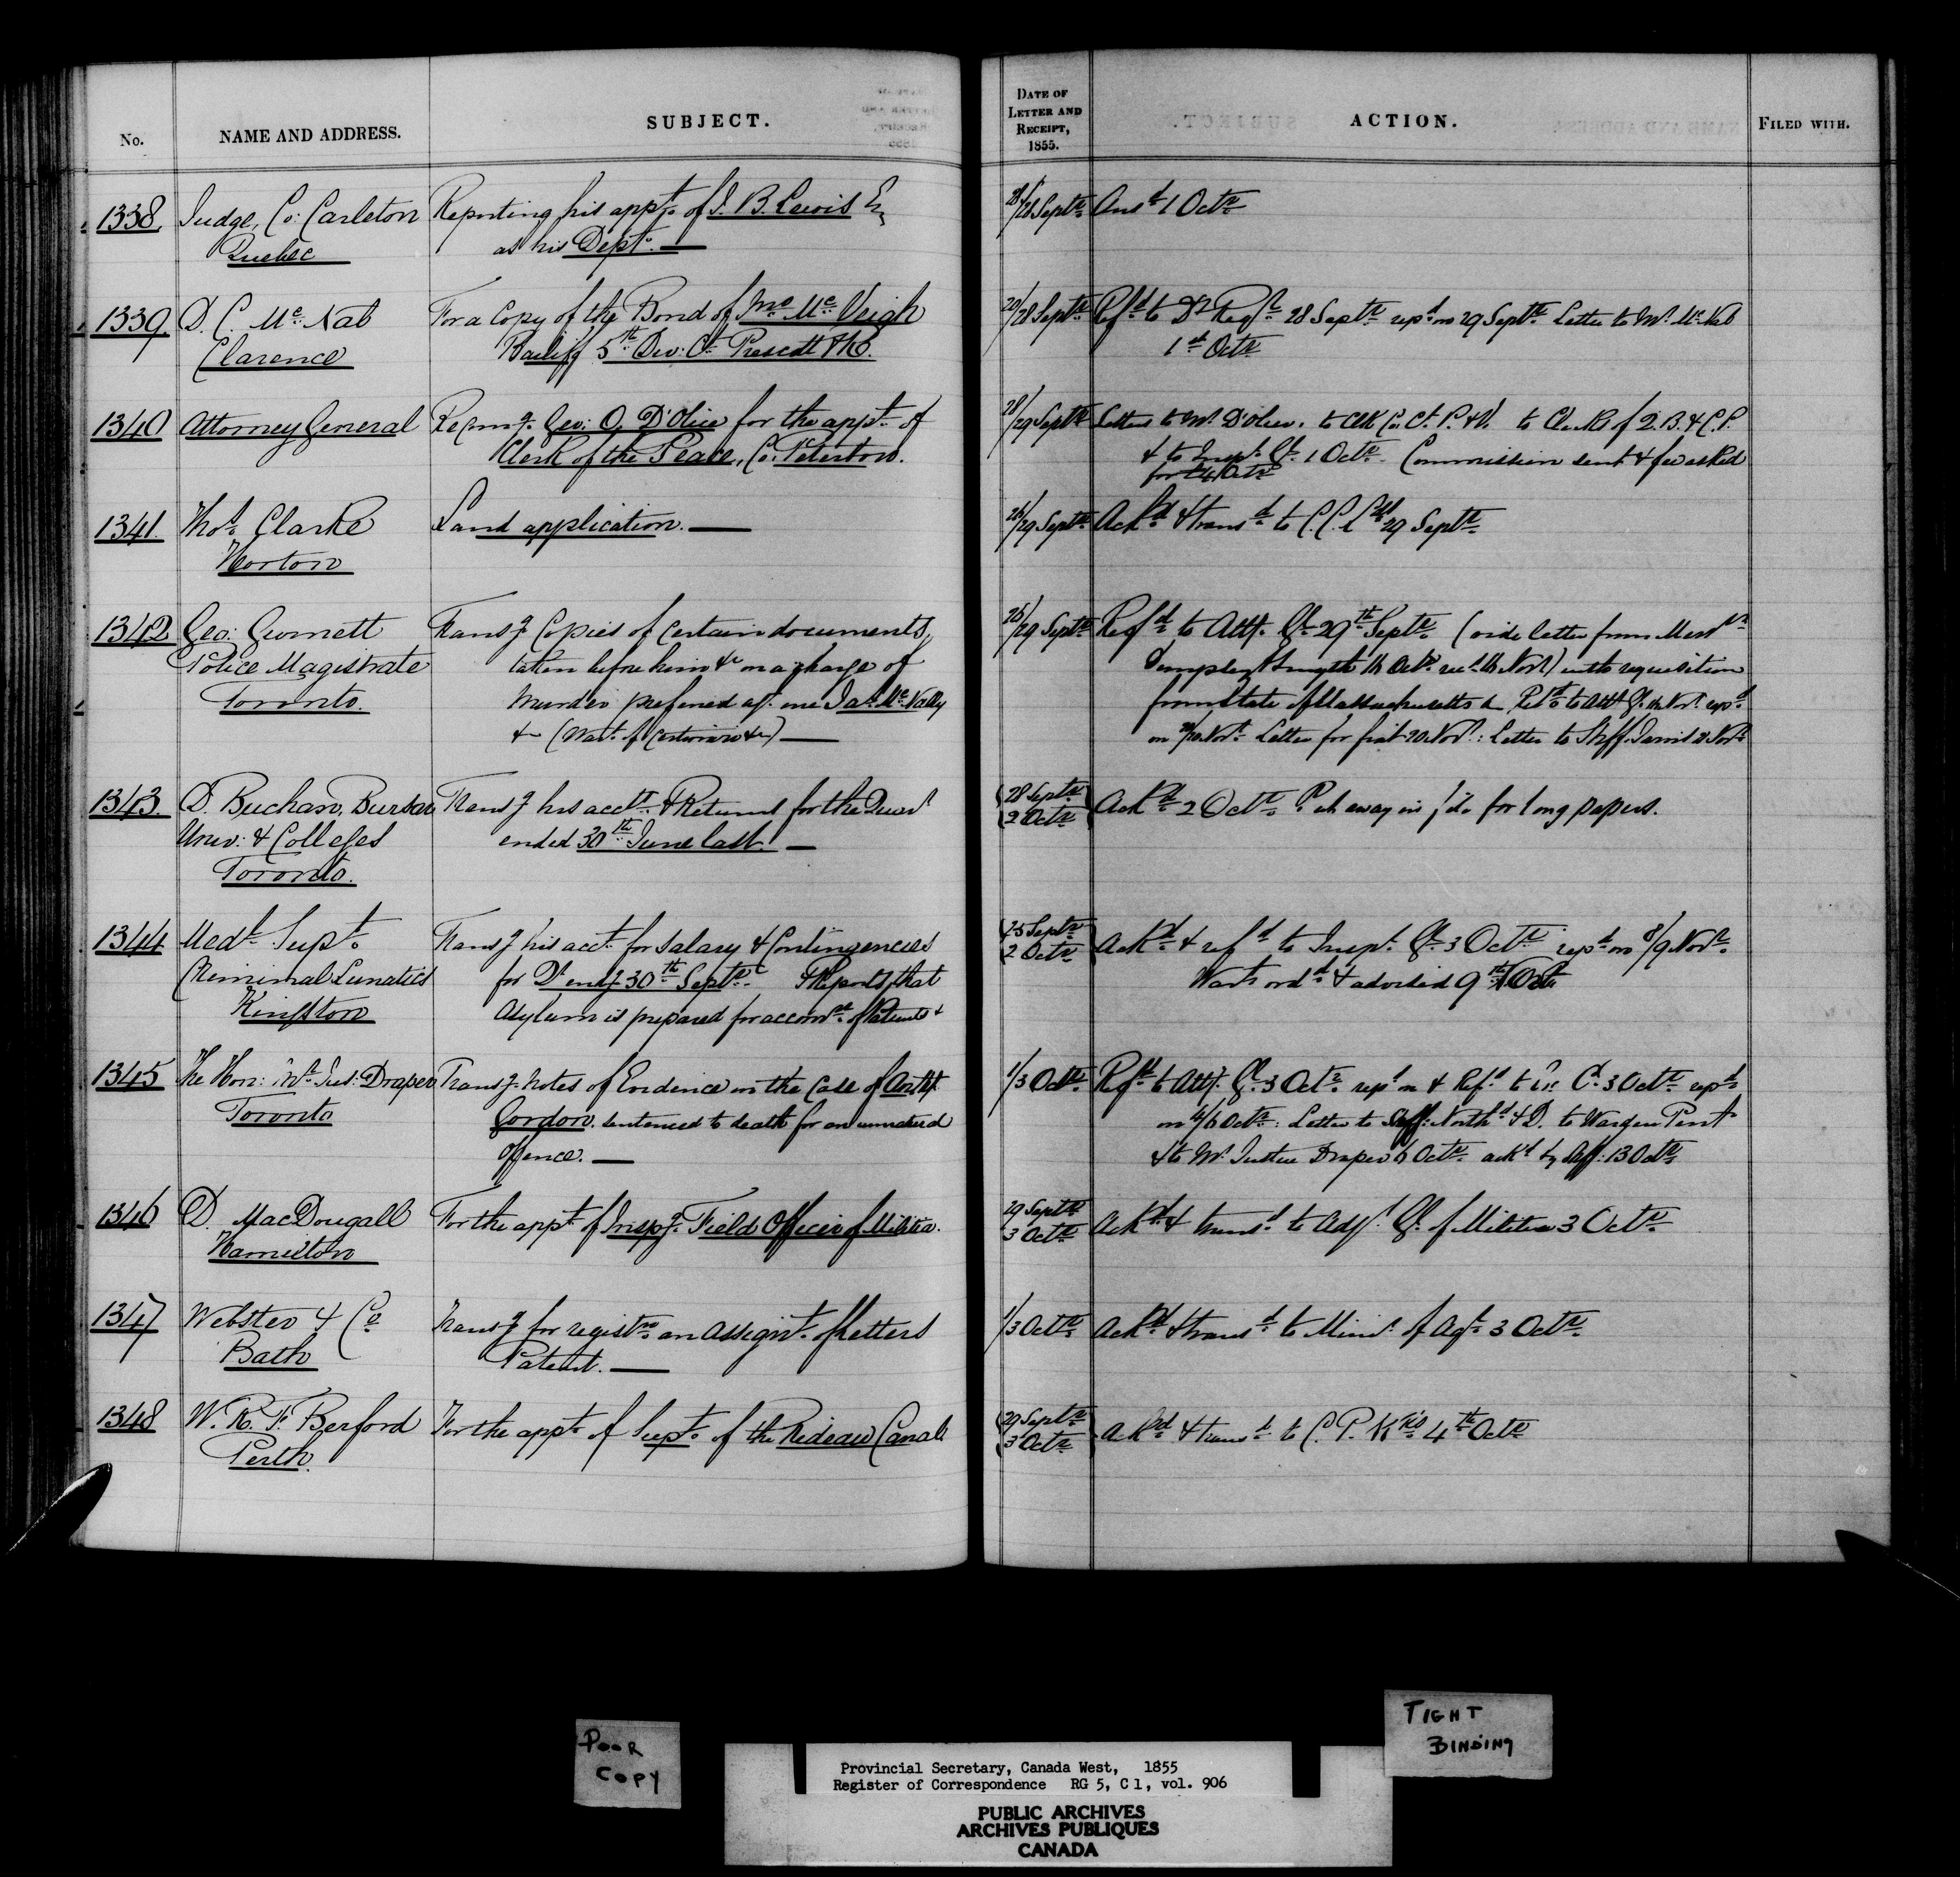 No.
NAME AND ADDRESS.
SUBJECT.
DATE OF LETTER AND RECEIPT, 1855.
ACTION.
FILED WITH.
1338. Judge, Co: Carleton Reporting his appt. of J. B. Lewis Er 28/28 Septr. Ansd. 1 Octr.
Quebec as his Dept.
1339 D. C. Mc.Nab For a Copy of the Bond of Mc.Veigh 20/28 Septr. Refd. to Dy Regr. 28 Septr. repd. on 29 Septr. Letter to Mr. McNab
Clarence Bailiff 5th. Div: Ct. Prescott &c. 1st Octr.
1340 Attorney General Recomg. Geo: O. D'Olier for the appt. of 28/29 Septr. Letters to Mr. D'Olier. to Clk Co. Ct. P. & V. to Clerks of Q.B. & C.P.
Clerk of the Peace, Co: Peterboro. & to Inspr. Gl. 1 Octr. Commission sent & fee asked
for Octr.
1341. Thos. Clarke Land application. 26/29 Septr. Ackd. & transd. to C.C.L. 29 Septr.
Norton
1342 Geo: Gurnett Transg Copies of certain documents, 26/29 Septr. Refd. to Atty. Gl. 29th. Septr. (vide letter from Messrs.
Police Magistrate taken before him &c on a charge of Smyth Octr. Novr) with requisition
Toronto. Murder preferred agt. one Jas. Mc.Nally from State of Massachusetts & Refd. to Atty Gl. Novr. repd.
&c (Wart. of Certiorari &c) on Novr. Letter for fiat 20 Novr.: Letter to Shff. Jarvis Novr.
1343. D. Buchan, Bursar Transg his acct. & Return for the Quar 28 Septr. Ackd. 2 Octr. Put away in for long papers.
Univ: & Colleges ended 30th. June last. 2 Octr.
Toronto.
1344 Medl. Supt. Transg his acct. for Salary & Contingencies 25 Septr. Ackd. & refd. to Inspr. Gl. 3 Octr. repd. on 8/9 Novr.
Criminal Lunatics for Qr endg 30th. Septr. & Reports that 2 Octr. Wart ordd. & advised 9th
Kingston Asylum is prepared for accomn. of Patients
1345 The Hon: Mr. Jus: Draper Transg. Notes of Evidence in the Case of 1/3 Octr. Refd. to Atty. Gl. 3 Octr. repd on & Refd. to Ex: Cl. 3 Octr. repd.
Toronto Gordon. sentenced to death for an unnatural on 4/6 Octr. Letter to Shff: Northd. & D. to Warden Pent
offence. & to Mr. Justice Draper 6 Octr. ackd. by Shff: 13 Octr.
1346 D. MacDougall For the appt. of Inspg. Field Officer of Militia. 29 Septr. Ackd. & transd. to Adjt. Gl. of Militia 3 Octr.
Hamilton 3 Octr.
1347 Webster & Co. Transg for registrn. an Assignt. of Letters 1/3 Octr. Ackd. & transd. to Minr. of Agr. 3 Octr.
Bath Patent.
1348 W. R. F. Berford For the appt. of Supt. of the Rideau Canal. 29 Septr. Ackd. & transd. to C. P. Wks 4th Octr.
Perth. 3 Octr.
POOR
COPY
TIGHT
BINDING
Provincial Secretary, Canada West, 1855
Register of Correspondence RG 5, C 1, vol. 906
PUBLIC ARCHIVES
ARCHIVES PUBLIQUES
CANADA